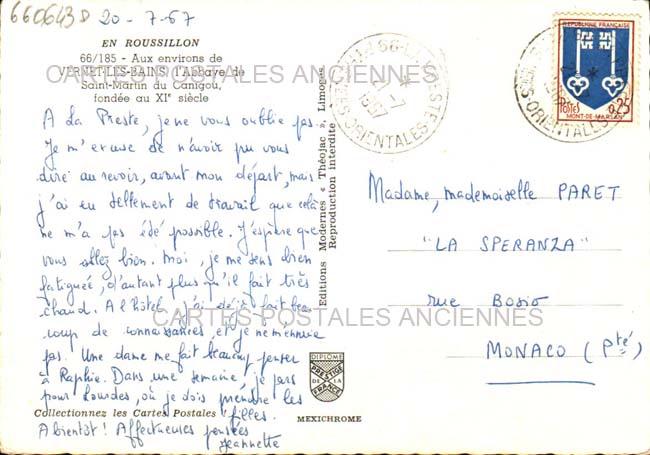 660643D 20-7-67
EN ROUSSILLON
66/185 - Aux environs de
VERNET-LES-BAINS) l'Abbaye de
Saint-Martin du Canigou,
fondée au XIe siècle
A La Preste, je ne vous oublie pas.
Je m'excuse de n'avoir pu vous
dire au revoir, avant mon départ, mais
j'ai eu tellement de travail que celà
ne m'a pas été possible. J'espère que
vous allez bien. Moi, je me sens bien
fatiguée, d'autant plus qu'il fait très
chaud. A l'hôtel, j'ai déjà fait beau
coup de connaissances, et je ne m'ennuie
pas. Une dame me fait beaucoup penser
à Raphie. Dans une semaine, je pars
pour Lourdes, où je dois prendre les
filles.
A bientôt! Affectueuses pensées
Jeannette
Collectionnez les Cartes Postales
Editions Modernes "Théojac", Limoges
Reproduction interdite
DIPLOME
PRESTIGE
DE LA
FRANCE
MEXICHROME
66-LA PRESTE
PYRENEES ORIENTALES
1967
REPUBLIQUE FRANÇAISE
POSTES
0,25
MONT-DE-MARSAN
ORIENTALES
Madame, mademoiselle PARET
"LA SPERANZA"
rue Bosio
MONACO (Pté)
CARTES POSTALES ANCIENNES
CARTES POSTALES ANCIENNES